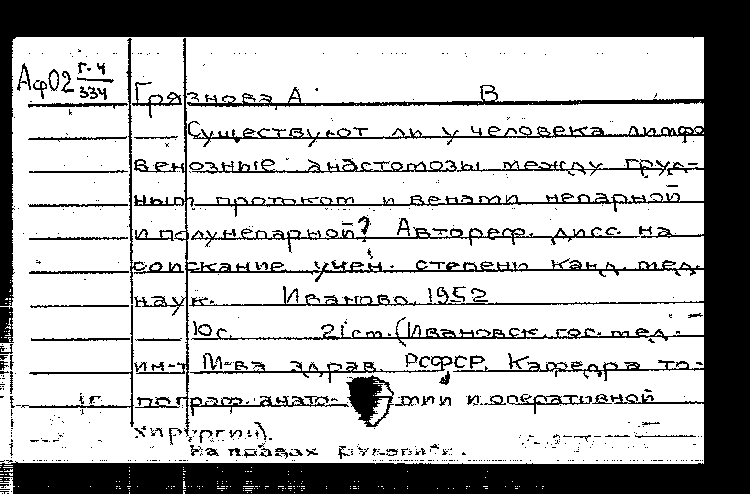 Аф02 Г-4/334
Грязнова, А. В
Существуют ли у человека лимфо
венозные анастомозы между груд-
ным протоком и венами непарной
и полунепарной? Автореф. дисс. на
соискание учен. степени канд. мед.
наук. Иваново, 1952
10с. 21 см. (Ивановск. гос. мед.
ин-т М-ва здрав. РСФСР. Кафедра то-
1г пограф. анато- мии и оперативной
хирургии).
На правах рукописи.